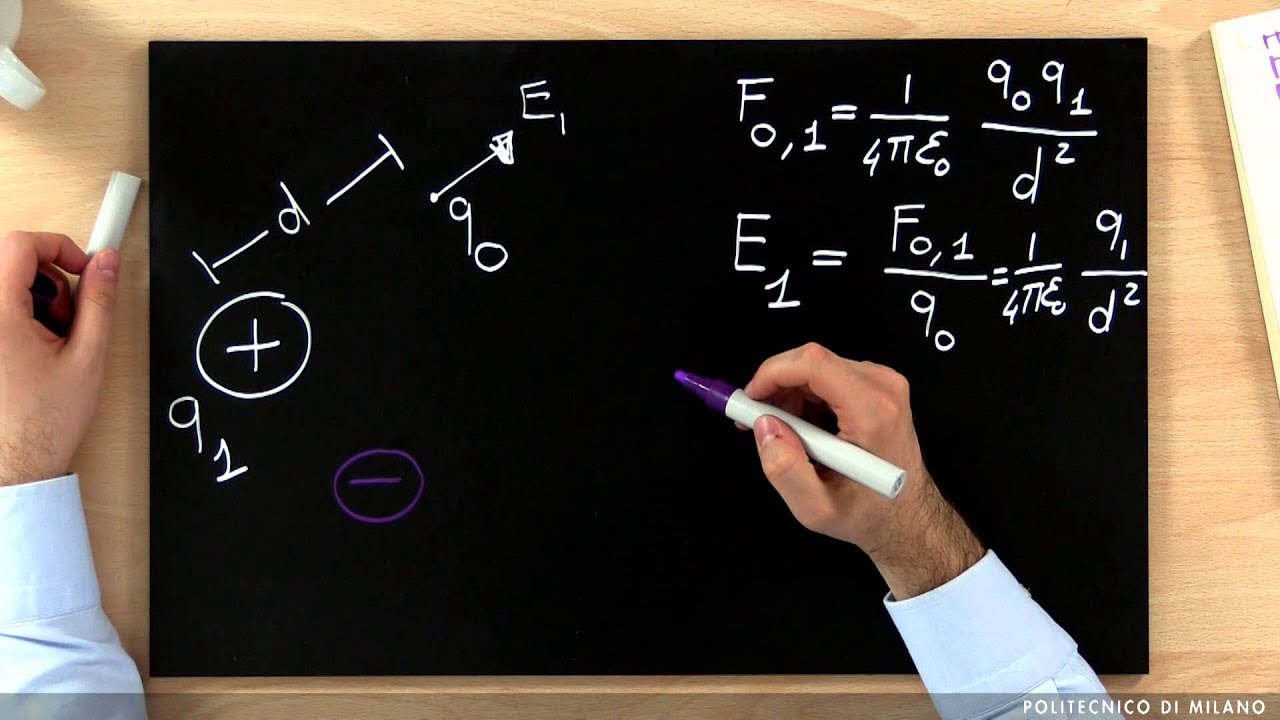 E₁
d
q₀
+
q₁
−
F₀,₁ = 1/(4πε₀) q₀q₁/d²
E₁ = F₀,₁/q₀ = 1/(4πε₀) q₁/d²
POLITECNICO DI MILANO